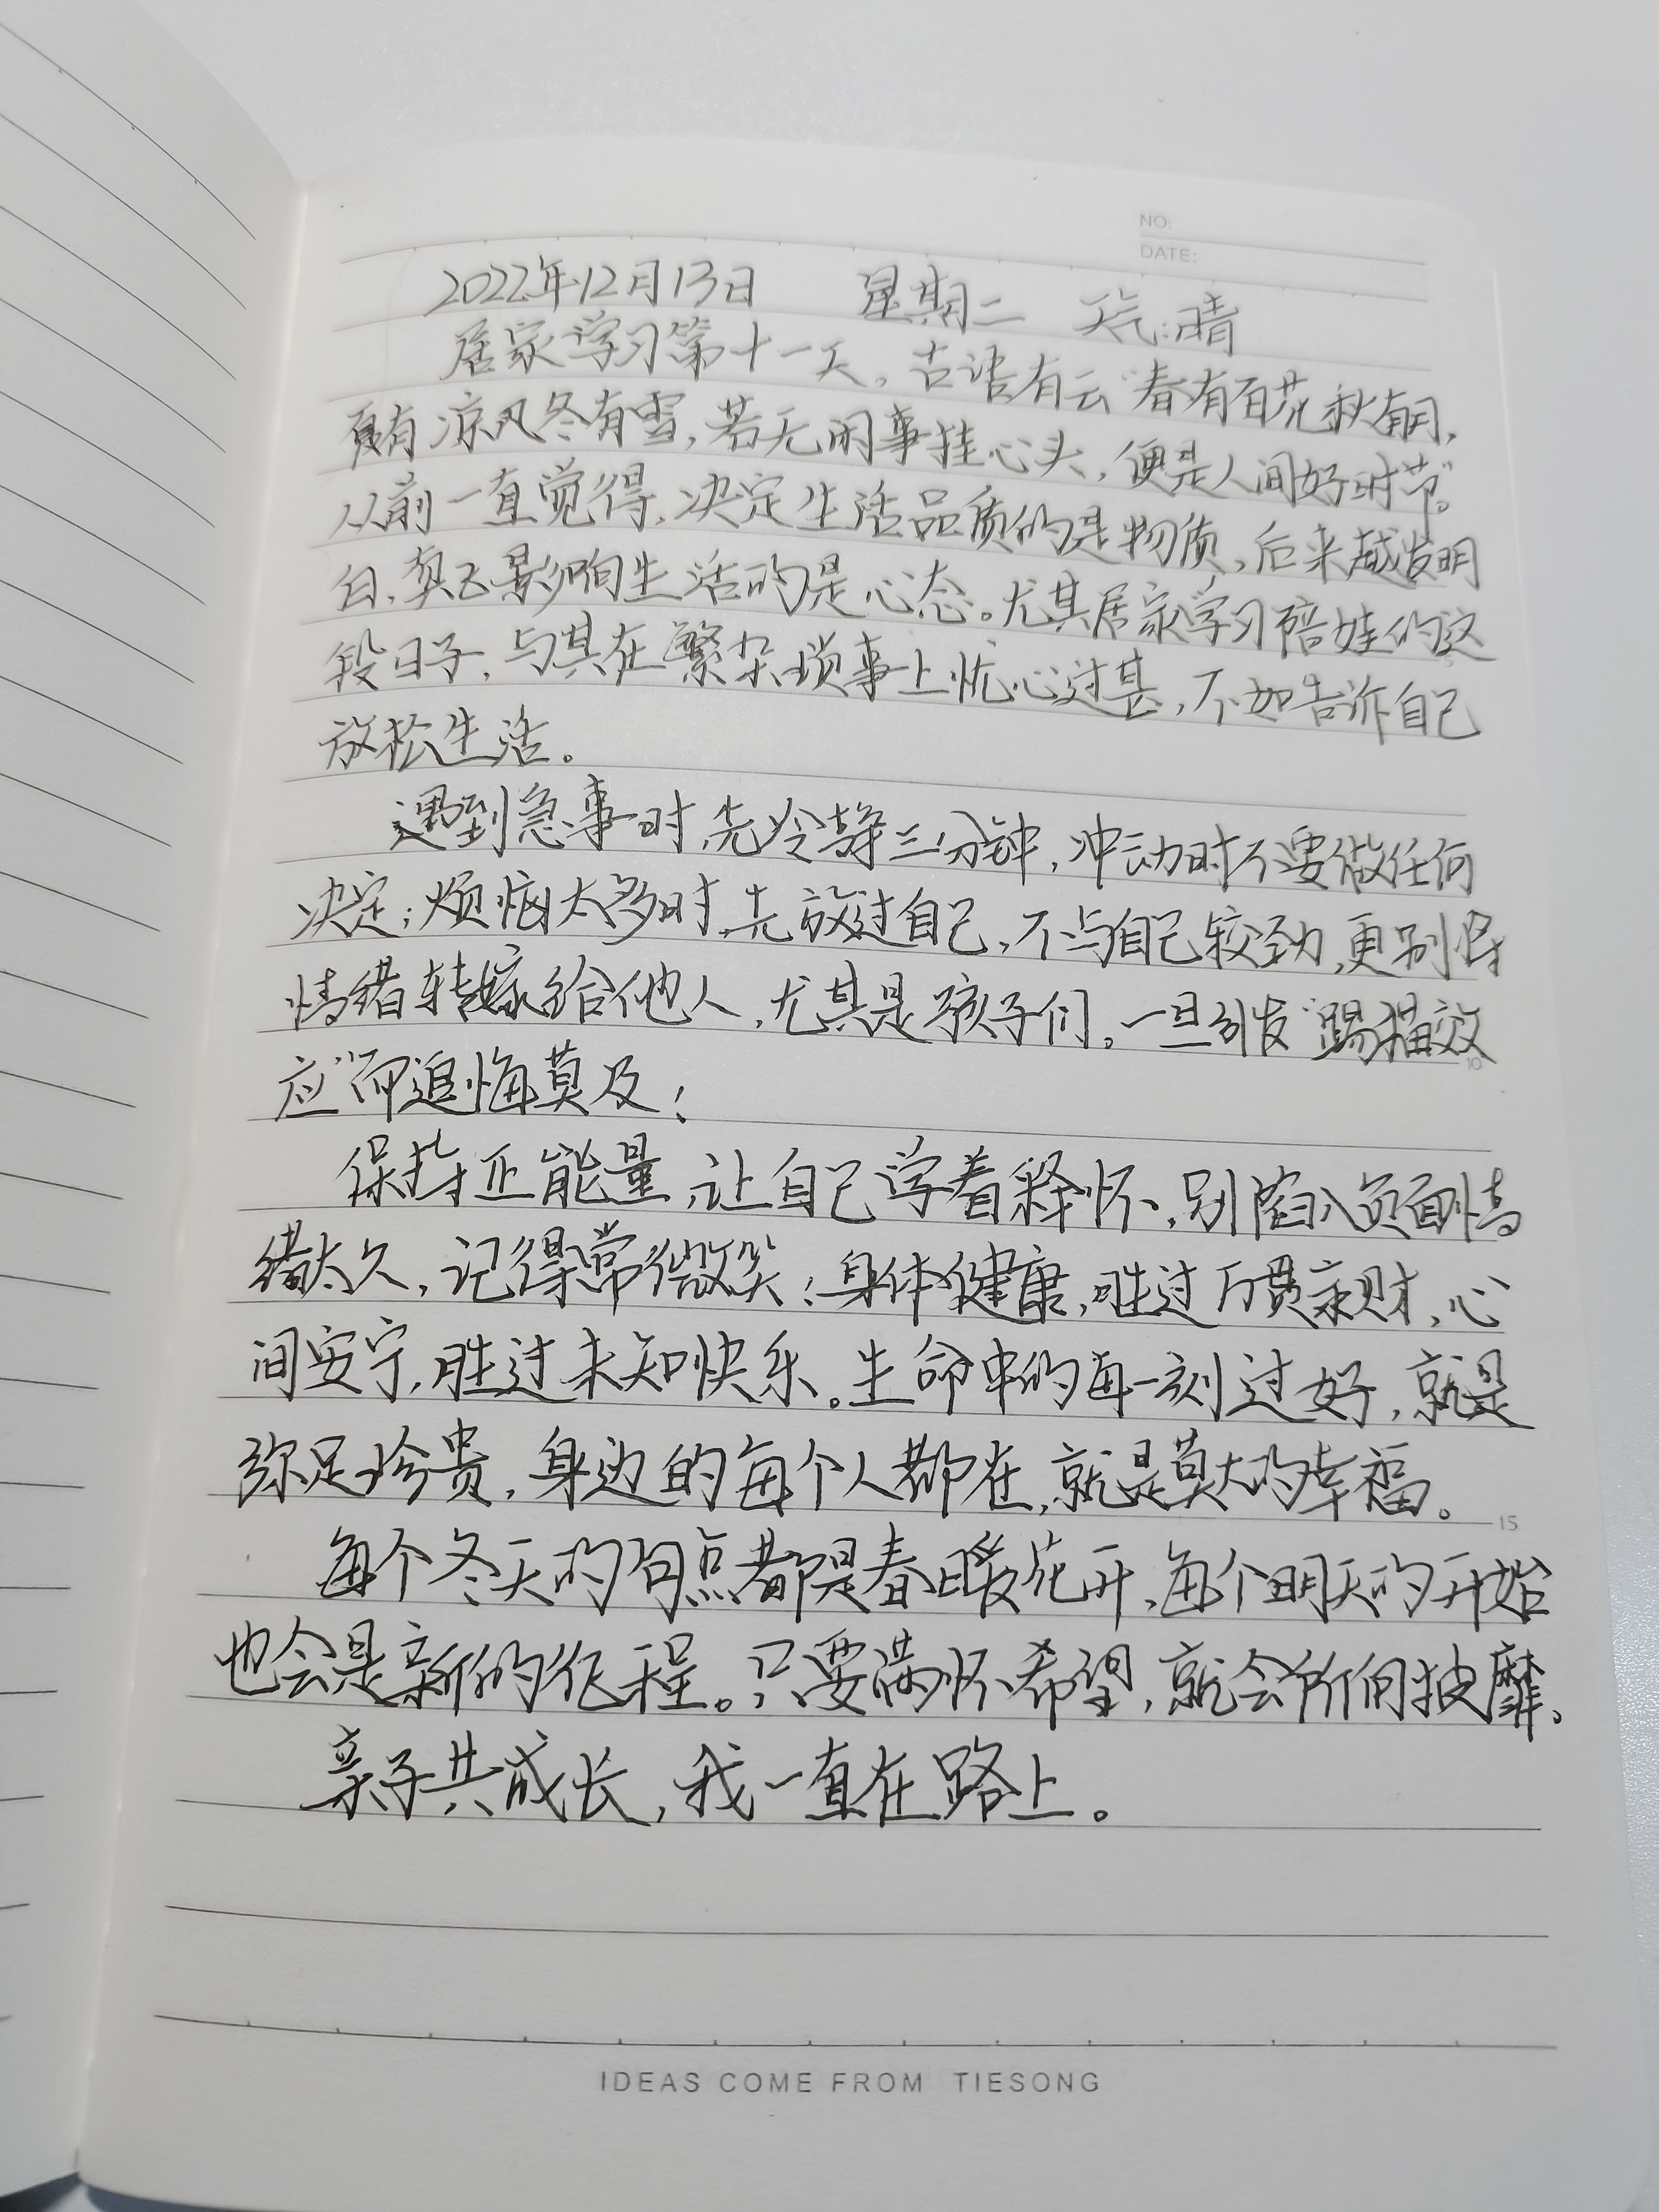 NO:
DATE:
2022年12月13日 星期二 天气:晴
居家学习第十一天。古语有云"春有百花秋有月,
夏有凉风冬有雪,若无闲事挂心头,便是人间好时节"。
从前一直觉得,决定生活品质的是物质,后来越发明
白,真正影响生活的是心态。尤其居家学习陪娃的这
段日子,与其在繁杂琐事上忧心过甚,不如告诉自己
放松生活。
遇到急事时,先冷静三分钟,冲动时不要做任何
决定;烦恼太多时,先放过自己,不与自己较劲,更别将
情绪转嫁给他人,尤其是孩子们。一旦引发"踢猫效
应"而追悔莫及!
保持正能量,让自己学着释怀,别陷入负面情
绪太久,记得常微笑!身体健康,胜过万贯家财,心
间安宁,胜过未知快乐。生命中的每一刻过好,就是
弥足珍贵,身边的每个人都在,就是莫大的幸福。
每个冬天的句点都是春暖花开,每个明天的开始
也会是新的征程。只要满怀希望,就会所向披靡。
亲子共成长,我一直在路上。
5
10
15
IDEAS COME FROM TIESONG